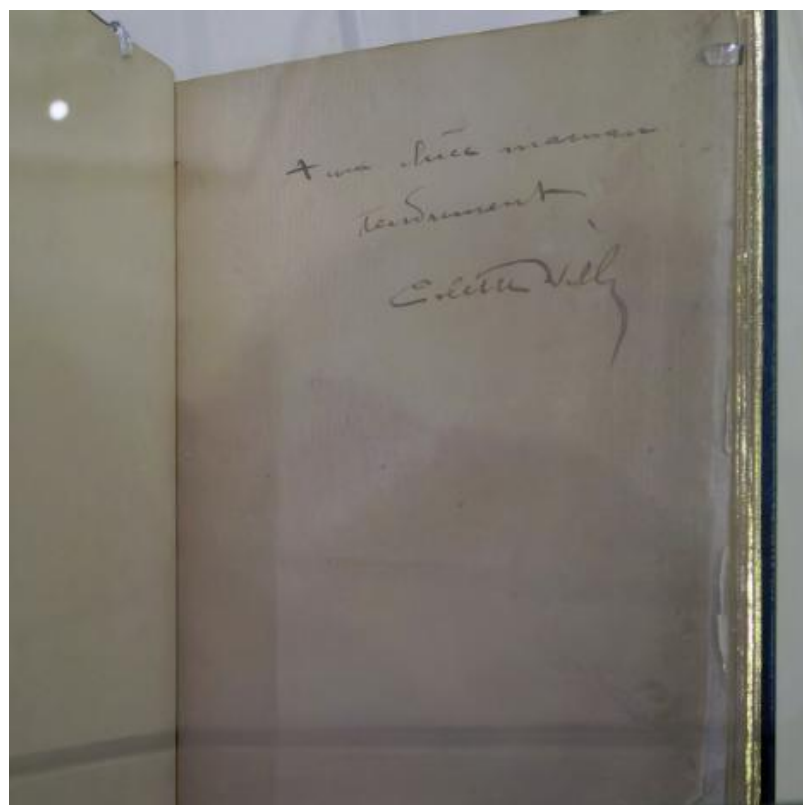 A ma chère maman
tendrement
Colette Willy